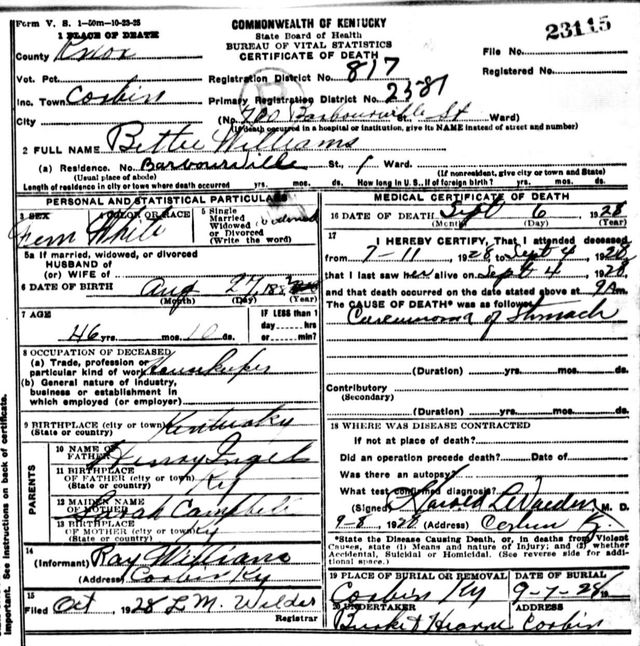 Form V. S. 1-50m-10-23-25
COMMONWEALTH OF KENTUCKY
State Board of Health
BUREAU OF VITAL STATISTICS
CERTIFICATE OF DEATH
23115
1 PLACE OF DEATH
County Knox
File No.
Vot. Pct.
Registration District No. 817
Registered No.
Inc. Town Corbin
Primary Registration District No. 2381
City
(No. 700 Barbourville St Ward)
(If death occurred in a hospital or institution, give its NAME instead of street and number)
2 FULL NAME Bettie Williams
(a) Residence. No. Barbourville St., 1 Ward.
(Usual place of abode)
(If nonresident, give city or town and State)
Length of residence in city or town where death occurred yrs. mos. ds. How long in U. S., if of foreign birth? yrs. mos. ds.
PERSONAL AND STATISTICAL PARTICULARS
3 SEX
Fem
4 COLOR OR RACE
White
5 Single
Married
Widowed
or Divorced
(Write the word)
5a If married, widowed, or divorced
HUSBAND of
(or) WIFE of
6 DATE OF BIRTH Aug 27, 188
(Month) (Day) (Year)
7 AGE
46 yrs. mos. 10 ds.
IF LESS than 1
day hrs
or min?
8 OCCUPATION OF DECEASED
(a) Trade, profession or
particular kind of work Housekeeper
(b) General nature of industry,
business or establishment in
which employed (or employer)
9 BIRTHPLACE (city or town) Kentucky
(State or country)
PARENTS
10 NAME OF
FATHER Henry Engel
11 BIRTHPLACE
OF FATHER (city or town) Ky
(State or country)
12 MAIDEN NAME
OF MOTHER Sarah Campbell
13 BIRTHPLACE
OF MOTHER (city or town) Ky
(State or country)
14
(Informant) Ray Williams
(Address) Corbin Ky
15
Filed Oct, 1928 L M. Wilder
Registrar
MEDICAL CERTIFICATE OF DEATH
16 DATE OF DEATH Sept 6 1928
(Month) (Day) (Year)
17
I HEREBY CERTIFY, That I attended deceased
from 7-11, 1928 to Sept 4, 1928
that I last saw her alive on Sept 4, 1928,
and that death occurred on the date stated above at 9 Am.
The CAUSE OF DEATH* was as follows:
Carcinoma of Stomach
(Duration) yrs. mos. ds.
Contributory
(Secondary)
(Duration) yrs. mos. ds.
18 WHERE WAS DISEASE CONTRACTED
If not at place of death?
Did an operation precede death? Date of
Was there an autopsy?
What test confirmed diagnosis?
(Signed) Harold M. D.
9-8, 1928 (Address) Corbin Ky.
*State the Disease Causing Death, or, in deaths from Violent
Causes, state (1) Means and nature of Injury; and (2) whether
Accidental, Suicidal or Homicidal. (See reverse side for addi-
tional space.)
19 PLACE OF BURIAL OR REMOVAL
Corbin Ky
DATE OF BURIAL
9-7-28
20 UNDERTAKER
Hearne
ADDRESS
Corbin
important. See instructions on back of certificate.